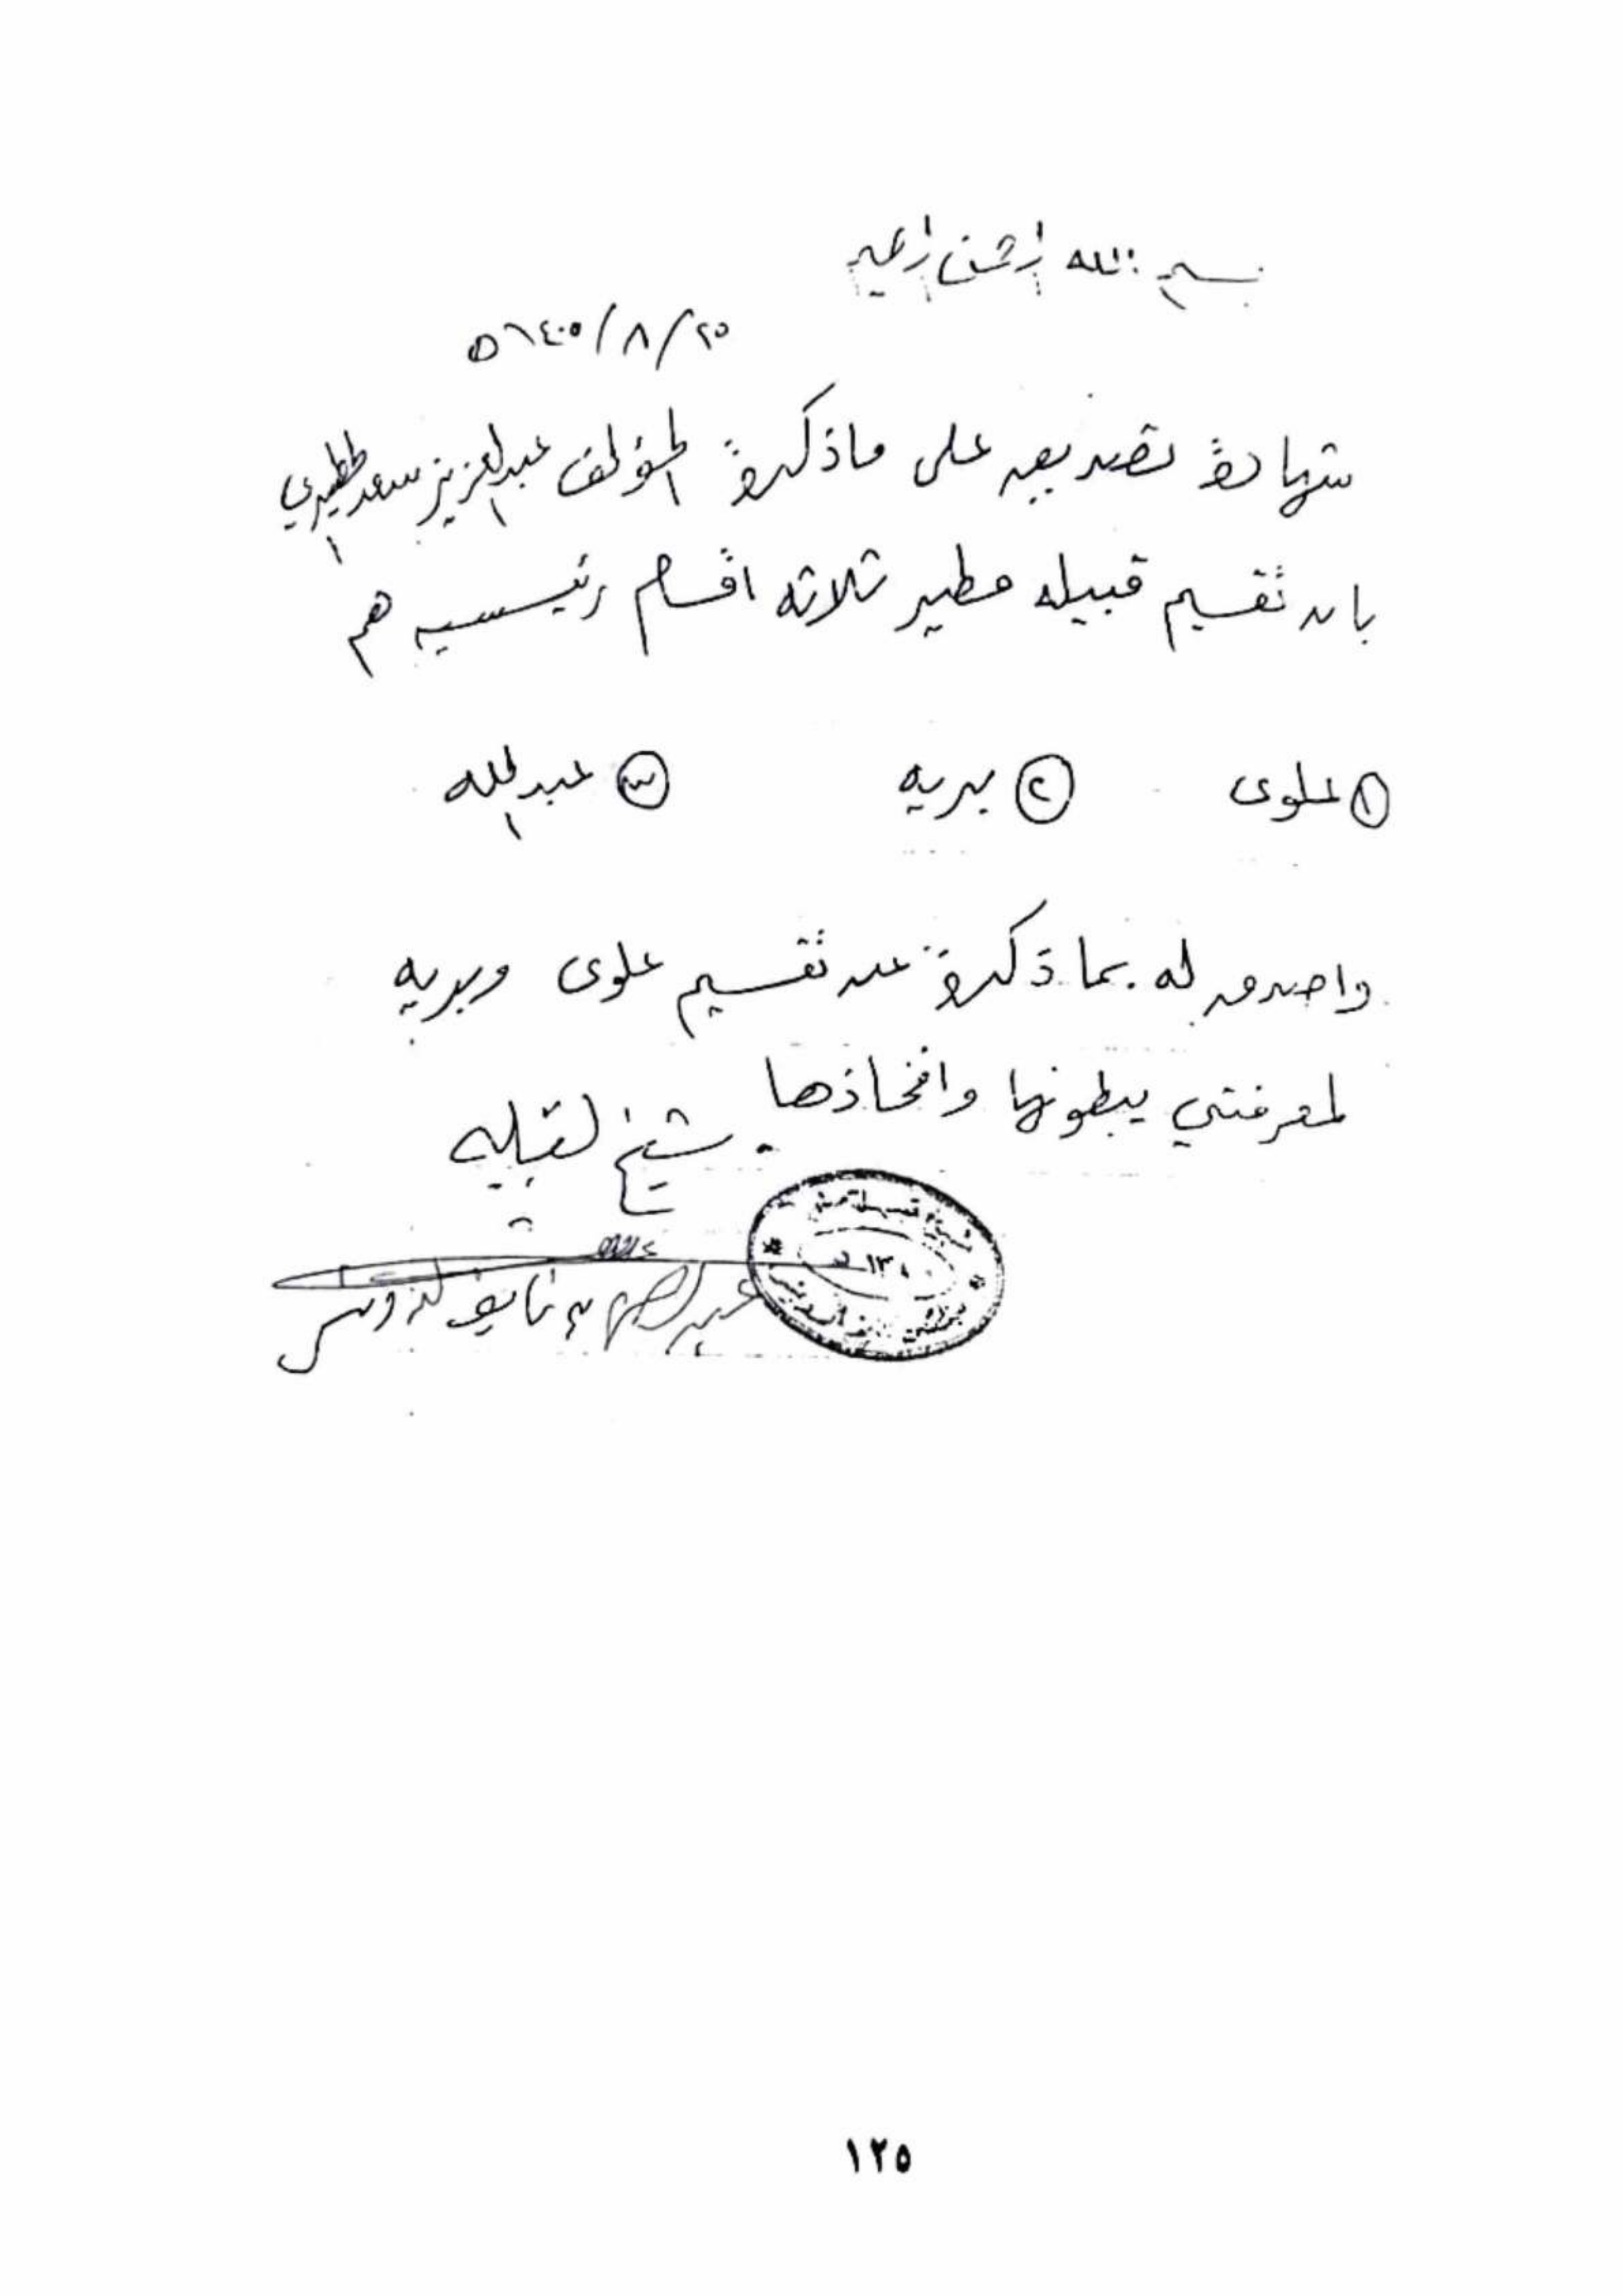 بسم الله الرحمن الرحيم
٢٥/٨/١٤٠٥ه
شهادة تصديق على ماذكرة المؤلف عبدالعزيز سعد المطيري
بان تقسيم قبيله مطير ثلاثه اقسام رئيسيه هم
١ علوى ٢ بريه ٣ عبدالله
واصدق له بما ذكرة عن تقسيم علوى وبريه
لمعرفتي ببطونها وافخاذها.
شيخ القبيله
نايف الدويش
١٢٥